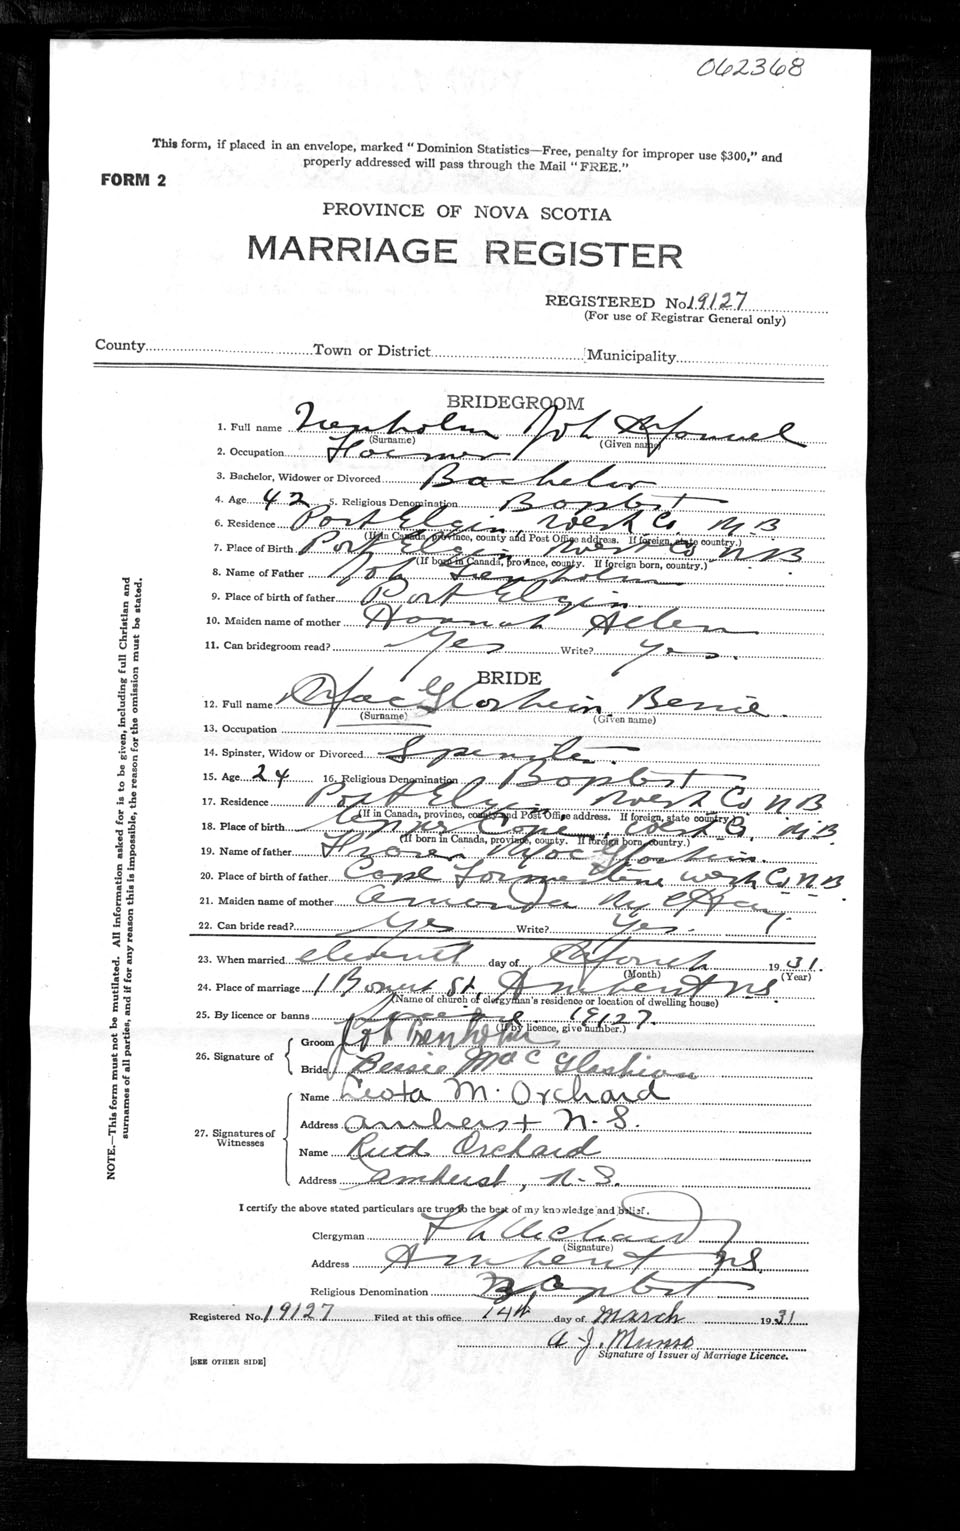 062368
This form, if placed in an envelope, marked "Dominion Statistics—Free, penalty for improper use $300," and
properly addressed will pass through the Mail "FREE."
FORM 2
PROVINCE OF NOVA SCOTIA
MARRIAGE REGISTER
REGISTERED No. 19127
(For use of Registrar General only)
County Town or District Municipality
BRIDEGROOM
1. Full name Trenholm
(Surname) (Given name)
2. Occupation Farmer
3. Bachelor, Widower or Divorced Bachelor
4. Age 42 5. Religious Denomination Baptist
6. Residence Port Elgin, West Co. N B
(If in Canada, province, county and Post Office address. If foreign, state country.)
7. Place of Birth Port Elgin West Co N B
(If born in Canada, province, county. If foreign born, country.)
8. Name of Father Trenholm
9. Place of birth of father Port Elgin
10. Maiden name of mother Hannah Allen
11. Can bridegroom read? Yes Write? Yes.
BRIDE
12. Full name MacGlashien Bessie
(Surname) (Given name)
13. Occupation
14. Spinster, Widow or Divorced Spinster.
15. Age 24 16. Religious Denomination Baptist
17. Residence Port Elgin West Co N B
(If in Canada, province, county and Post Office address. If foreign, state country.)
18. Place of birth Upper Cape, West Co. N B
(If born in Canada, province, county. If foreign born, country.)
19. Name of father MacGlashien.
20. Place of birth of father Cape Tormentine West Co N B
21. Maiden name of mother Amanda
22. Can bride read? Yes Write? Yes.
23. When married eleventh day of March 1931.
(Month) (Year)
24. Place of marriage 1 St, Amherst N.S.
(Name of church of clergyman's residence or location of dwelling house)
25. By licence or banns Licence 19127.
(If by licence, give number.)
26. Signature of
Groom Trenholm
Bride Bessie MacGlashien
27. Signatures of Witnesses
Name Leota M. Orchard
Address Amherst N.S.
Name Ruth Orchard
Address Amherst, N.S.
I certify the above stated particulars are true to the best of my knowledge and belief.
Clergyman Orchard
(Signature)
Address Amherst N.S.
Religious Denomination Baptist
Registered No. 19127 Filed at this office 14th day of March 1931
A. J. Munro
Signature of Issuer of Marriage Licence.
[SEE OTHER SIDE]
NOTE.—This form must not be mutilated. All information asked for is to be given, including full Christian and
surnames of all parties, and if for any reason this is impossible, the reason for the omission must be stated.